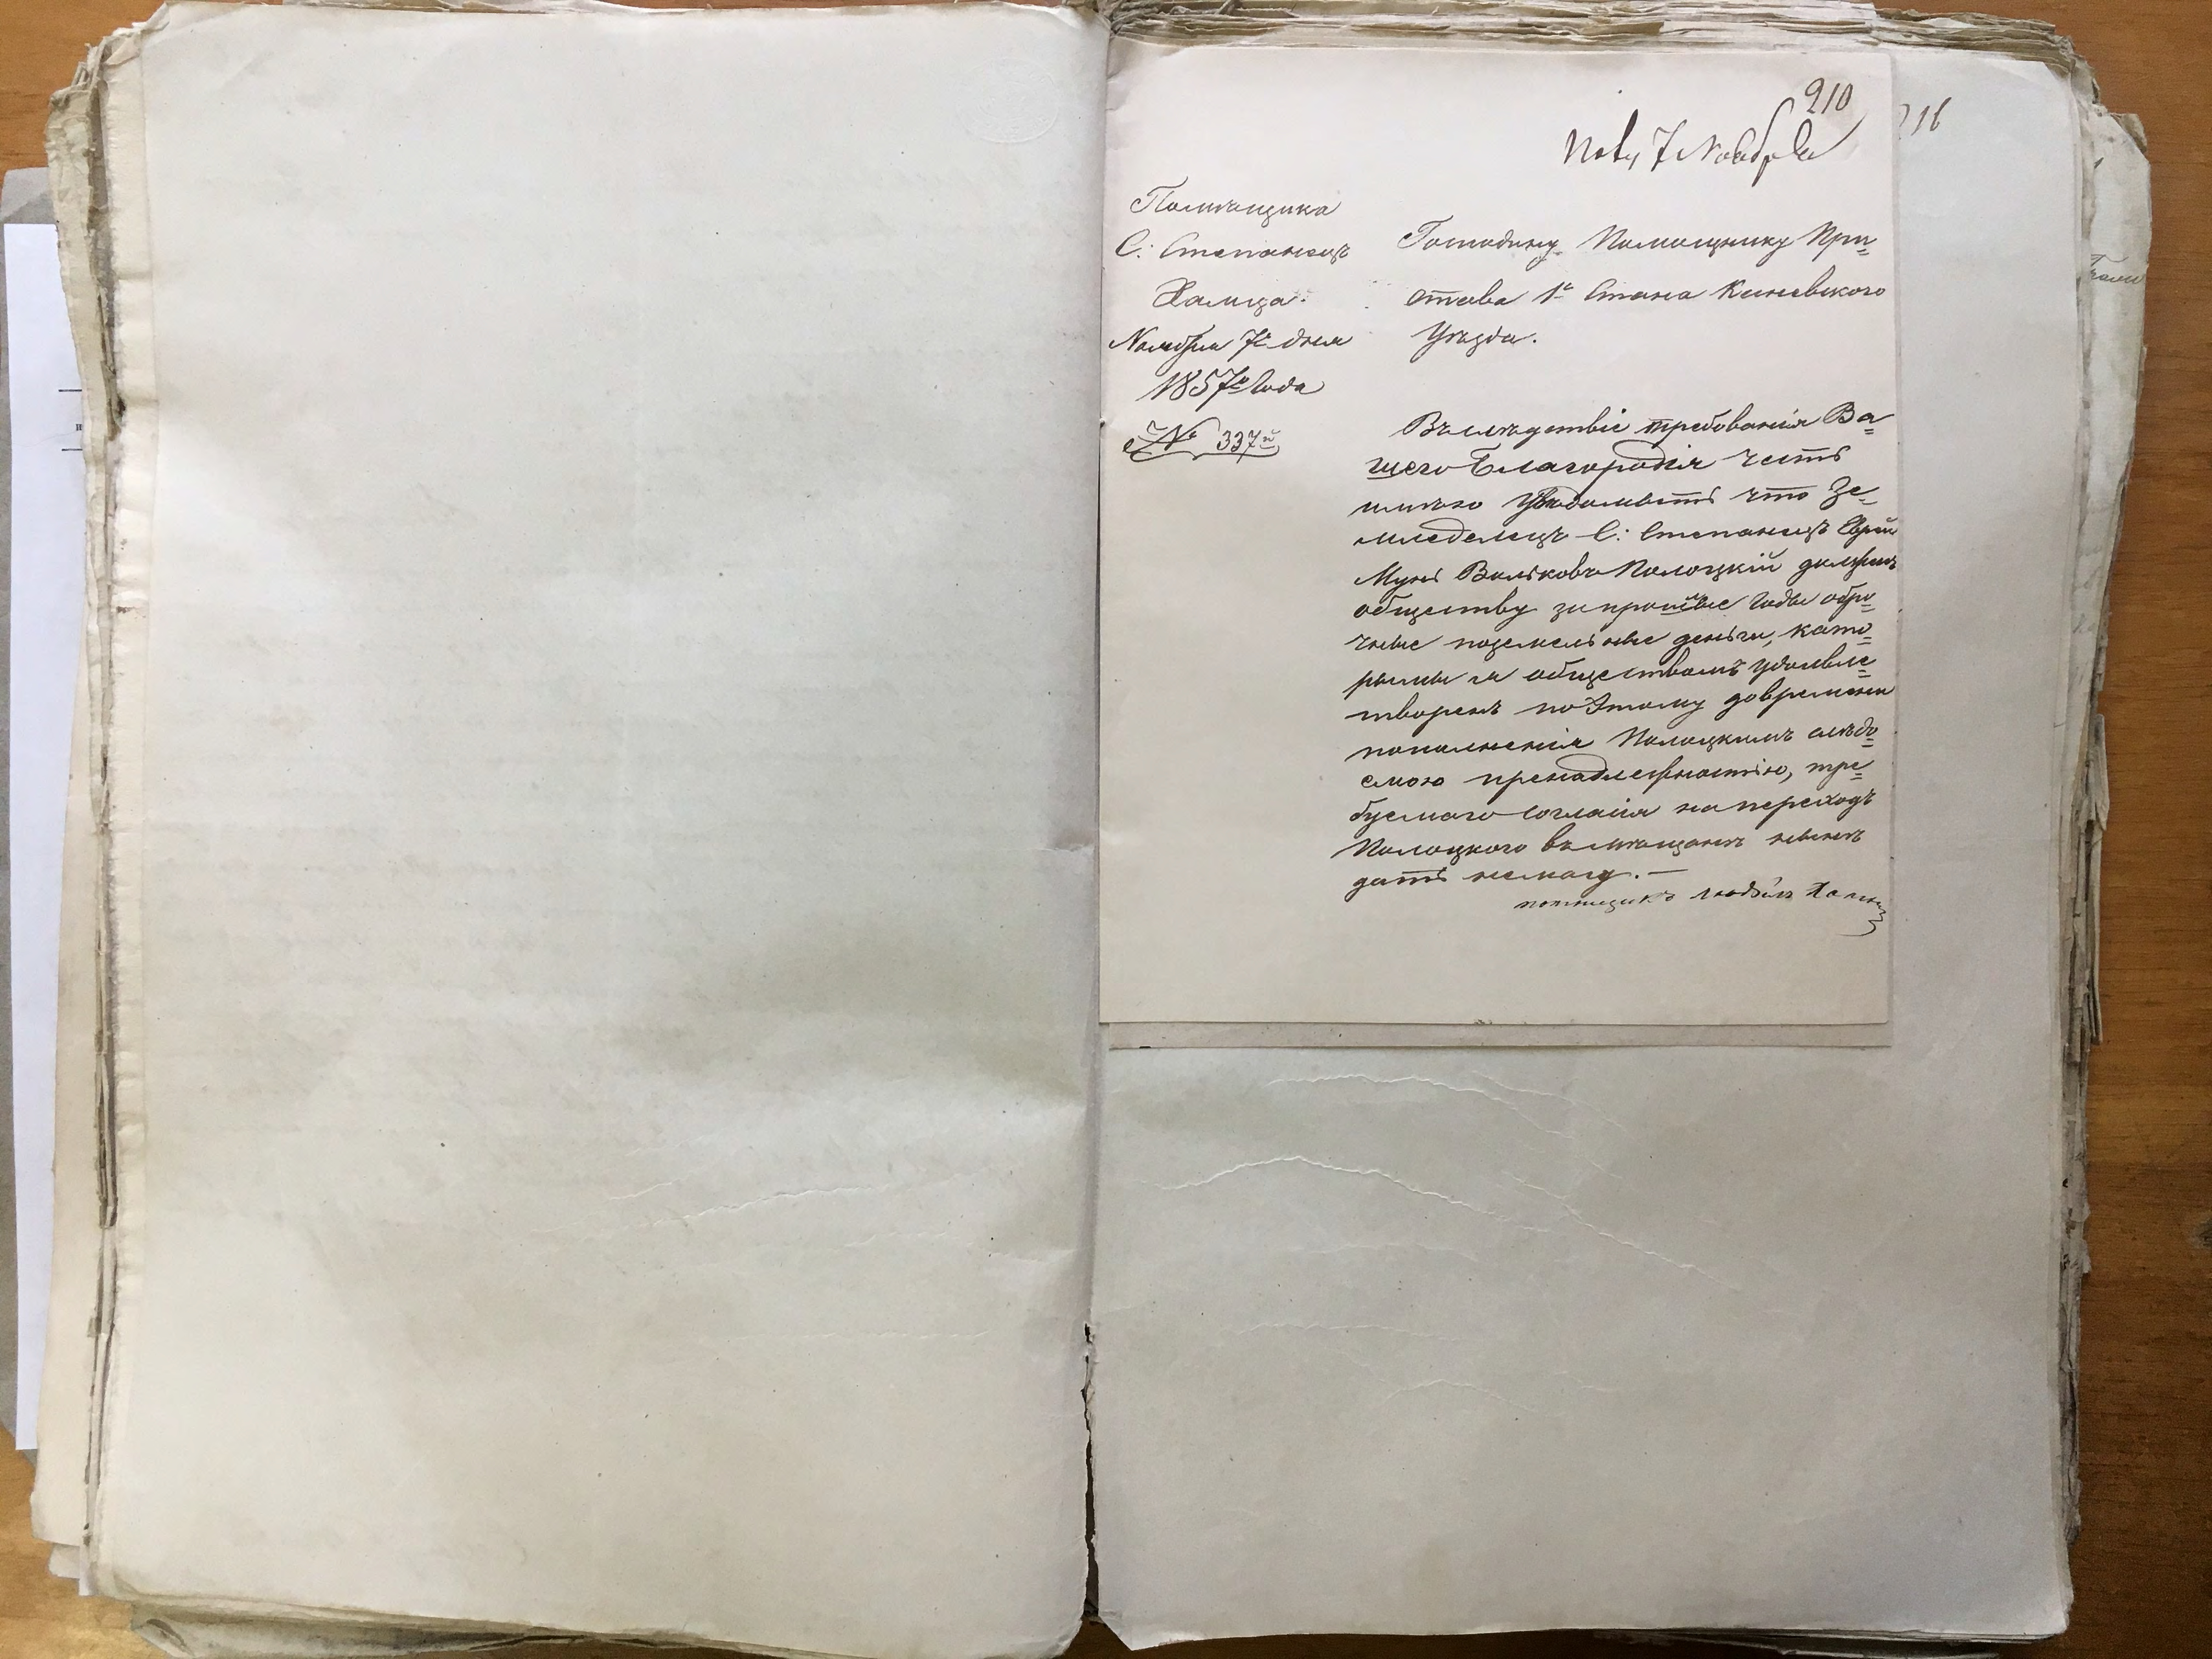 210
216
Пол. 7 Ноября
Помѣщика
С: Степанецъ
Хамца.
Ноября 7го дня
1857го Года
№ 337й
Господину Помощнику При=
става 1го Стана Каневского
Уѣзда.
Въслѣдствіе требованія Ва=
шего Благородія честь
имѣю Увѣдомить что Зе=
мледелецъ С: Степанецъ Еврей
Мунь Вольковъ Полоцкій долженъ
обществу за прошлые Годы обро=
чные поземельные деньги, кото=
рыми и обществомъ удовле=
творенъ поЭтому довремени
пополненія Полоцкимъ слѣдо=
емою пренадлежностію, тре=
буемаго согласія на переходъ
Полоцкого въ мѣщане нынѣ
дать немогу.—
помѣщикъ